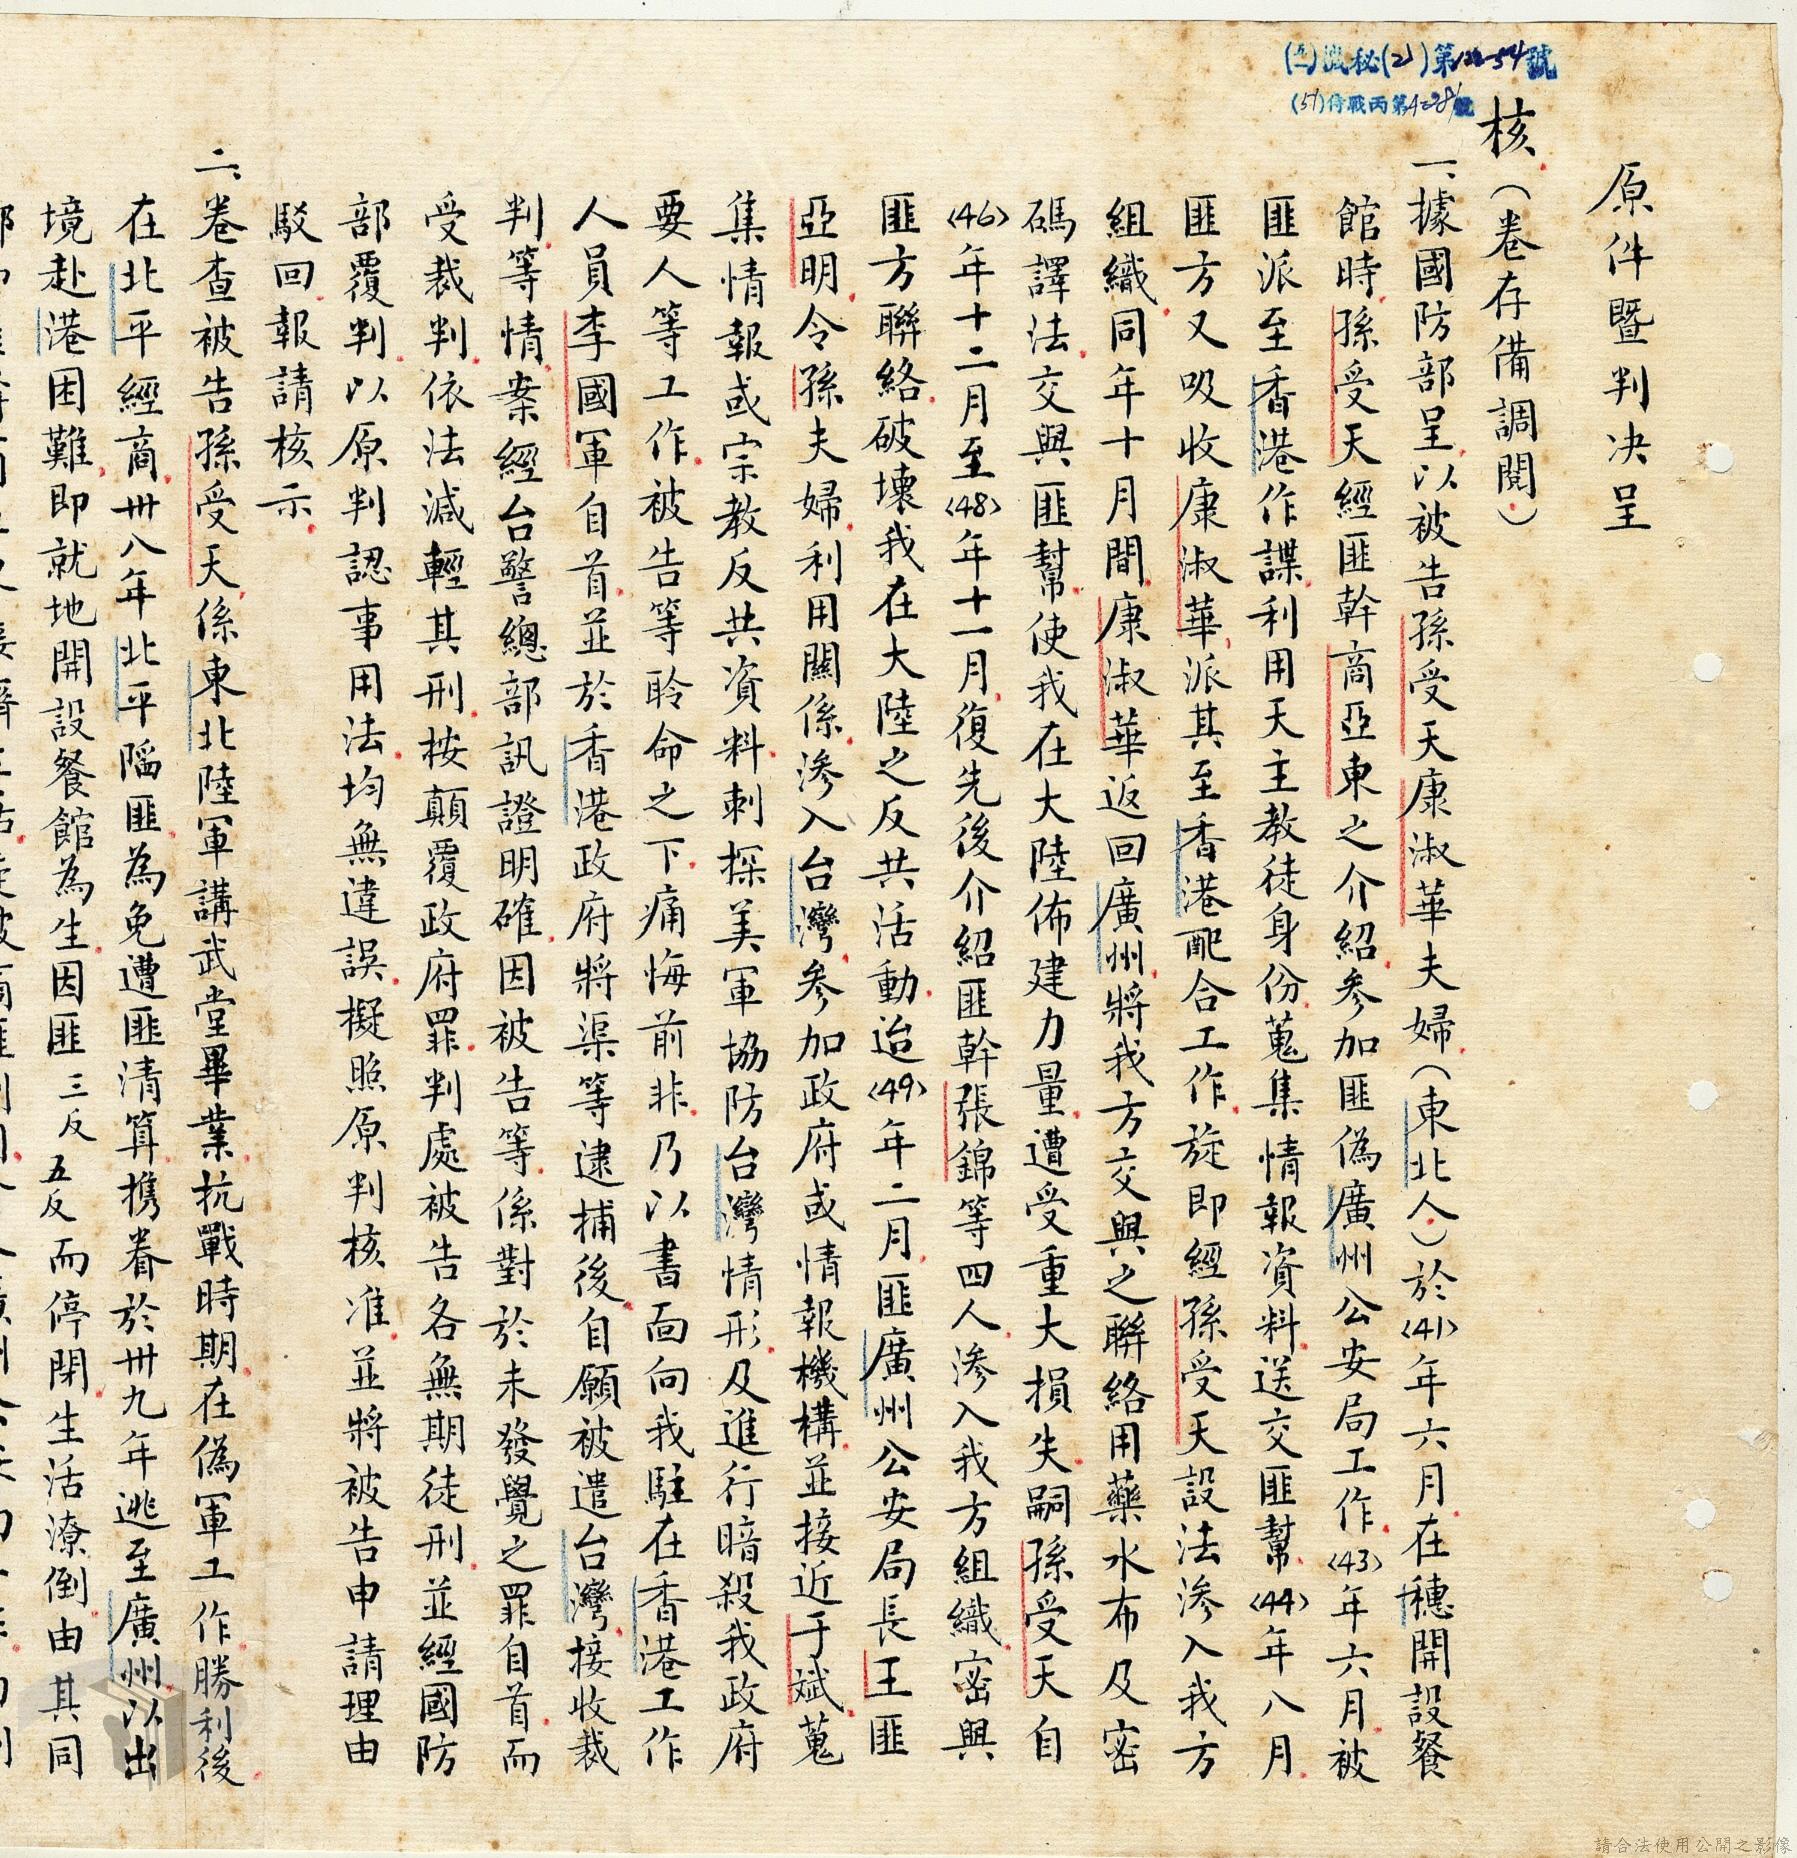 (51)機秘(2)第122-54號
(51)侍戰丙第428號
原件暨判決呈
核（卷存備調閱）
一、據國防部呈以被告孫受天康淑華夫婦（東北人）於(41)年六月在穗開設餐
館時孫受天經匪幹商亞東之介紹參加匪偽廣州公安局工作(43)年六月被
匪派至香港作諜利用天主教徒身份蒐集情報資料送交匪幫(44)年八月
匪方又吸收康淑華派其至香港配合工作旋即經孫受天設法滲入我方
組織同年十月間康淑華返回廣州將我方交與之聯絡用藥水布及密
碼譯法交與匪幫使我在大陸佈建力量遭受重大損失嗣孫受天自
(46)年十二月至(48)年十一月復先後介紹匪幹張錦等四人滲入我方組織密與
匪方聯絡破壞我在大陸之反共活動迨(49)年二月匪廣州公安局長王匪
亞明令孫夫婦利用關係滲入台灣參加政府或情報機構並接近于斌蒐
集情報或宗教反共資料刺探美軍協防台灣情形及進行暗殺我政府
要人等工作被告等聆命之下痛悔前非乃以書面向我駐在香港工作
人員李國軍自首並於香港政府將渠等逮捕後自願被遣台灣接收裁
判等情案經台警總部訊證明確因被告等係對於未發覺之罪自首而
受裁判依法減輕其刑按顛覆政府罪判處被告各無期徒刑並經國防
部覆判以原判認事用法均無違誤擬照原判核准並將被告申請理由
駁回報請核示
二、卷查被告孫受天係東北陸軍講武堂畢業抗戰時期在偽軍工作勝利後
在北平經商卅八年北平陷匪為免遭匪清算携眷於卅九年逃至廣州以出
境赴港困難即就地開設餐館為生因匪三反五反而停閉生活潦倒由其同
請合法使用公開之影像